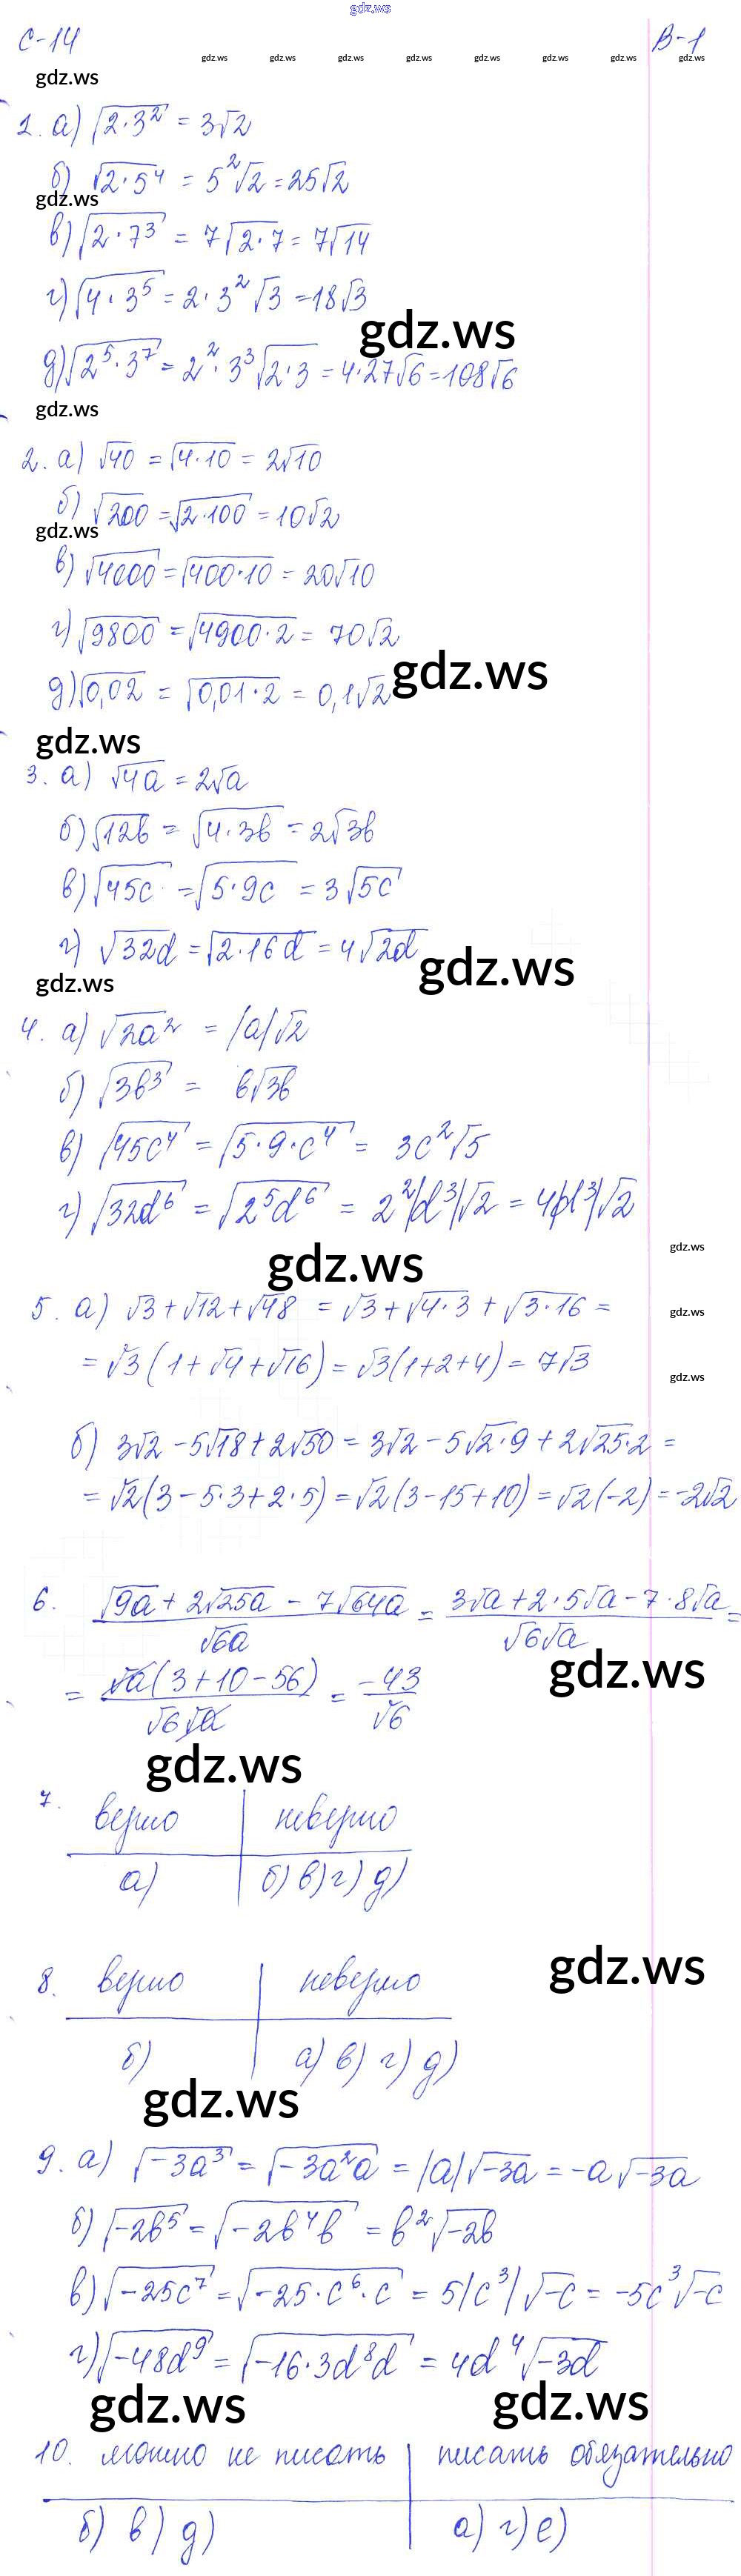 gdz.ws
С-14 В-1
gdz.ws gdz.ws gdz.ws gdz.ws gdz.ws gdz.ws gdz.ws gdz.ws
gdz.ws
1. а) √(2·3²) = 3√2
б) √(2·5⁴) = 5²√2 = 25√2
gdz.ws
в) √(2·7³) = 7√(2·7) = 7√14
г) √(4·3⁵) = 2·3²√3 = 18√3
gdz.ws
д) √(2⁵·3⁷) = 2²·3³√(2·3) = 4·27√6 = 108√6
gdz.ws
2. а) √40 = √(4·10) = 2√10
б) √200 = √(2·100) = 10√2
gdz.ws
в) √4000 = √(400·10) = 20√10
г) √9800 = √(4900·2) = 70√2
gdz.ws
д) √0,02 = √(0,01·2) = 0,1√2
gdz.ws
3. а) √4a = 2√a
б) √12b = √(4·3b) = 2√3b
в) √45c = √(5·9c) = 3√5c
г) √32d = √(2·16d) = 4√2d
gdz.ws
gdz.ws
4. а) √2a² = |a|√2
б) √3b³ = b√3b
в) √45c⁴ = √(5·9·c⁴) = 3c²√5
г) √32d⁶ = √2⁵d⁶ = 2²|d³|√2 = 4|d³|√2
gdz.ws
gdz.ws
5. а) √3 + √12 + √48 = √3 + √(4·3) + √(3·16) =
gdz.ws
= √3(1 + √4 + √16) = √3(1+2+4) = 7√3
gdz.ws
б) 3√2 - 5√18 + 2√50 = 3√2 - 5√(2·9) + 2√(25·2) =
= √2(3 - 5·3 + 2·5) = √2(3-15+10) = √2(-2) = -2√2
6. (√9a + 2√25a - 7√64a)/√6a = (3√a + 2·5√a - 7·8√a)/(√6√a) =
gdz.ws
= √a(3+10-56)/(√6√a) = -43/√6
gdz.ws
7. верно | неверно
а) | б) в) г) д)
gdz.ws
8. верно | неверно
б) | а) в) г) д)
gdz.ws
9. а) √(-3a³) = √(-3a²a) = |a|√(-3a) = -a√(-3a)
б) √(-2b⁵) = √(-2b⁴b) = b²√(-2b)
в) √(-25c⁷) = √(-25·c⁶·c) = 5|c³|√(-c) = -5c³√(-c)
г) √(-48d⁹) = √(-16·3d⁸d) = 4d⁴√(-3d)
gdz.ws gdz.ws
10. можно не писать | писать обязательно
б) в) д) | а) г) е)